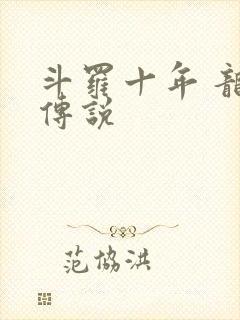 斗羅十年 龍
傳說
范協洪